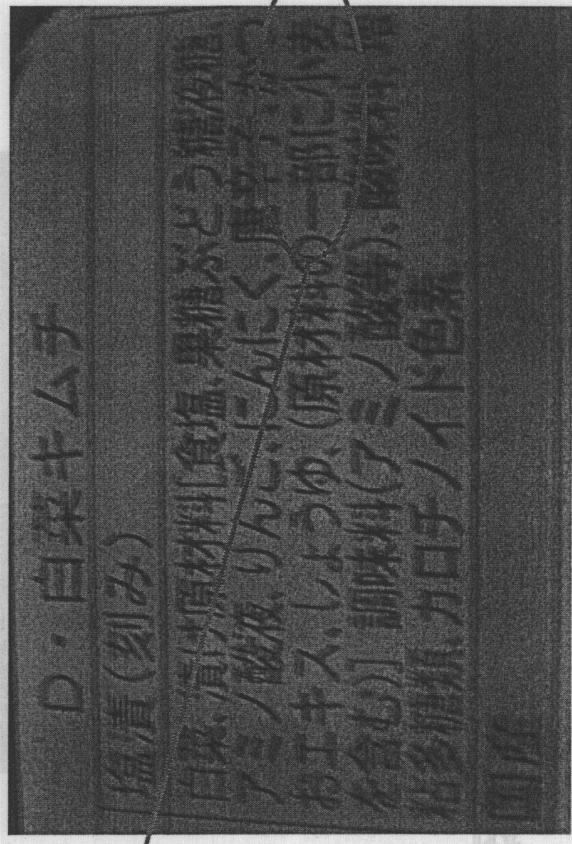 D・白菜キムチ
塩漬(刻み)
白菜、漬け原材料[食塩、果糖ぶどう糖液糖、
アミノ酸液、りんご、にんにく、
おエキス、しょうゆ、(原材料の一部に小麦
を含む)] 調味料(アミノ酸等)、酸味料、
粘多糖類、カロチノイド色素